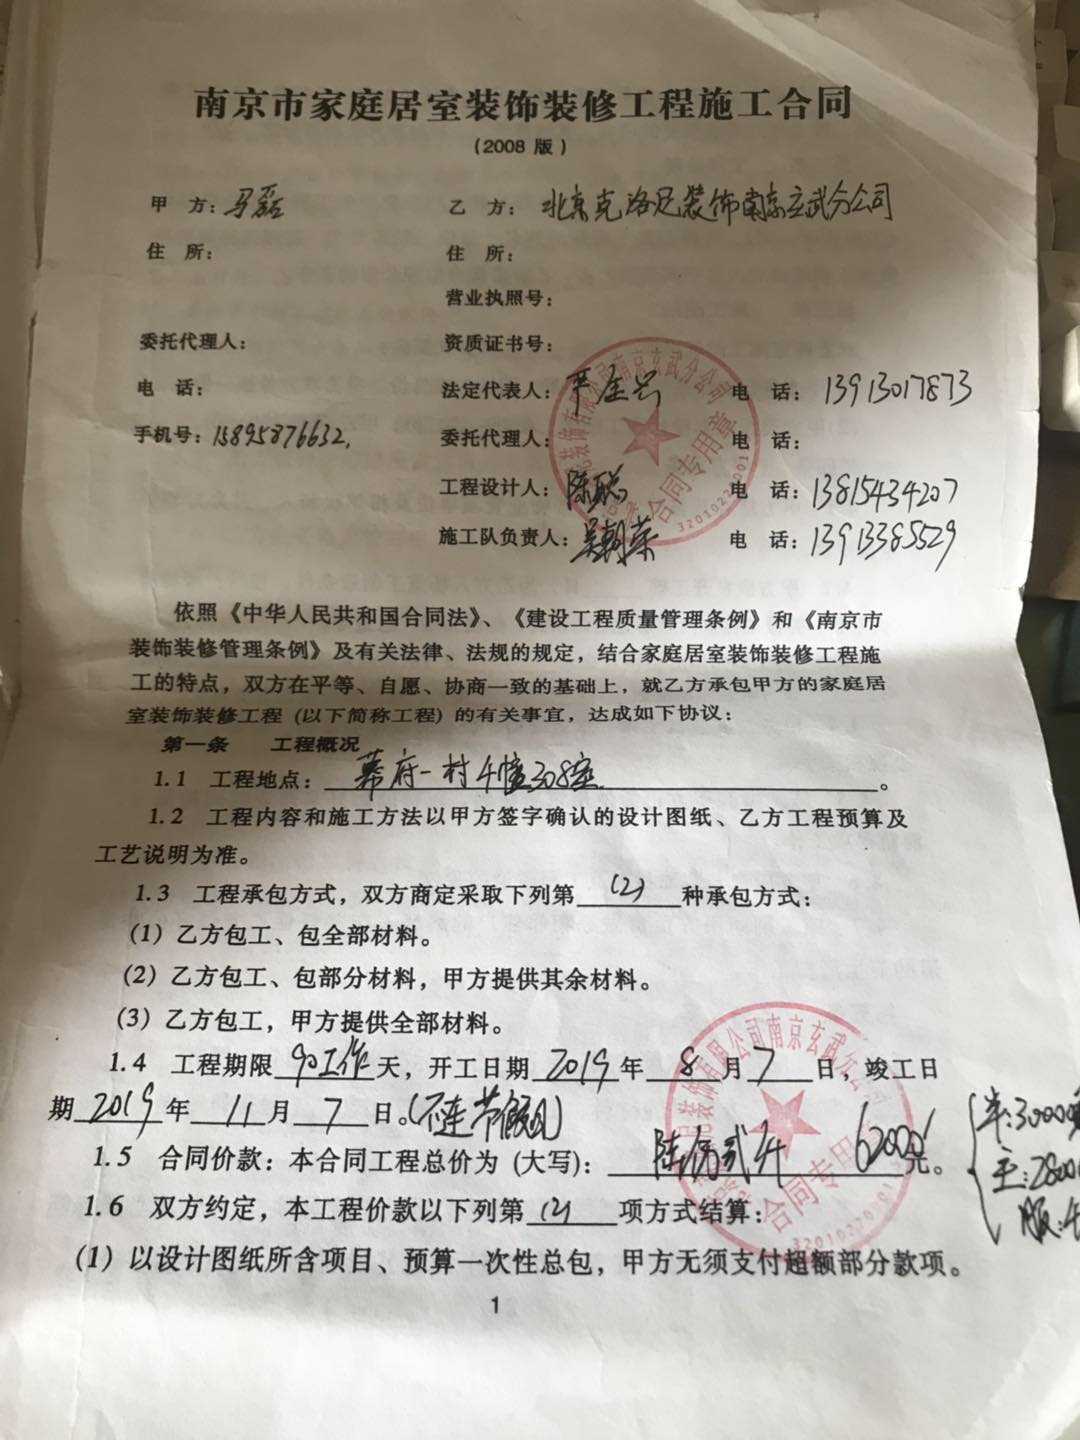 南京市家庭居室装饰装修工程施工合同
(2008 版)
甲 方: 马磊 乙 方: 北京克洛尼装饰南京玄武分公司
住 所: 住 所:
营业执照号:
委托代理人: 资质证书号:
电 话: 法定代表人: 严金兴 电 话: 13913017873
手机号: 15895876632. 委托代理人: 电 话:
工程设计人: 陈聪 电 话: 13815434207
施工队负责人: 吴朝荣 电 话: 13913385529
依照《中华人民共和国合同法》、《建设工程质量管理条例》和《南京市
装饰装修管理条例》及有关法律、法规的规定，结合家庭居室装饰装修工程施
工的特点，双方在平等、自愿、协商一致的基础上，就乙方承包甲方的家庭居
室装饰装修工程 (以下简称工程) 的有关事宜，达成如下协议:
第一条 工程概况
1.1 工程地点: 幕府一村4幢308室。
1.2 工程内容和施工方法以甲方签字确认的设计图纸、乙方工程预算及
工艺说明为准。
1.3 工程承包方式，双方商定采取下列第 (2) 种承包方式:
(1) 乙方包工、包全部材料。
(2) 乙方包工、包部分材料，甲方提供其余材料。
(3) 乙方包工，甲方提供全部材料。
1.4 工程期限 90工作 天，开工日期 2019 年 8 月 7 日，竣工日
期 2019 年 11 月 7 日。(不连节假日)
1.5 合同价款: 本合同工程总价为 (大写): 陆万贰仟 62000 元。
半:30000
主:2800
服:4
1.6 双方约定，本工程价款以下列第 (2) 项方式结算:
(1) 以设计图纸所含项目、预算一次性总包，甲方无须支付超额部分款项。
1
装饰有限公司南京玄武分公司
合同专用章
装饰有限公司南京玄武分公司
合同专用